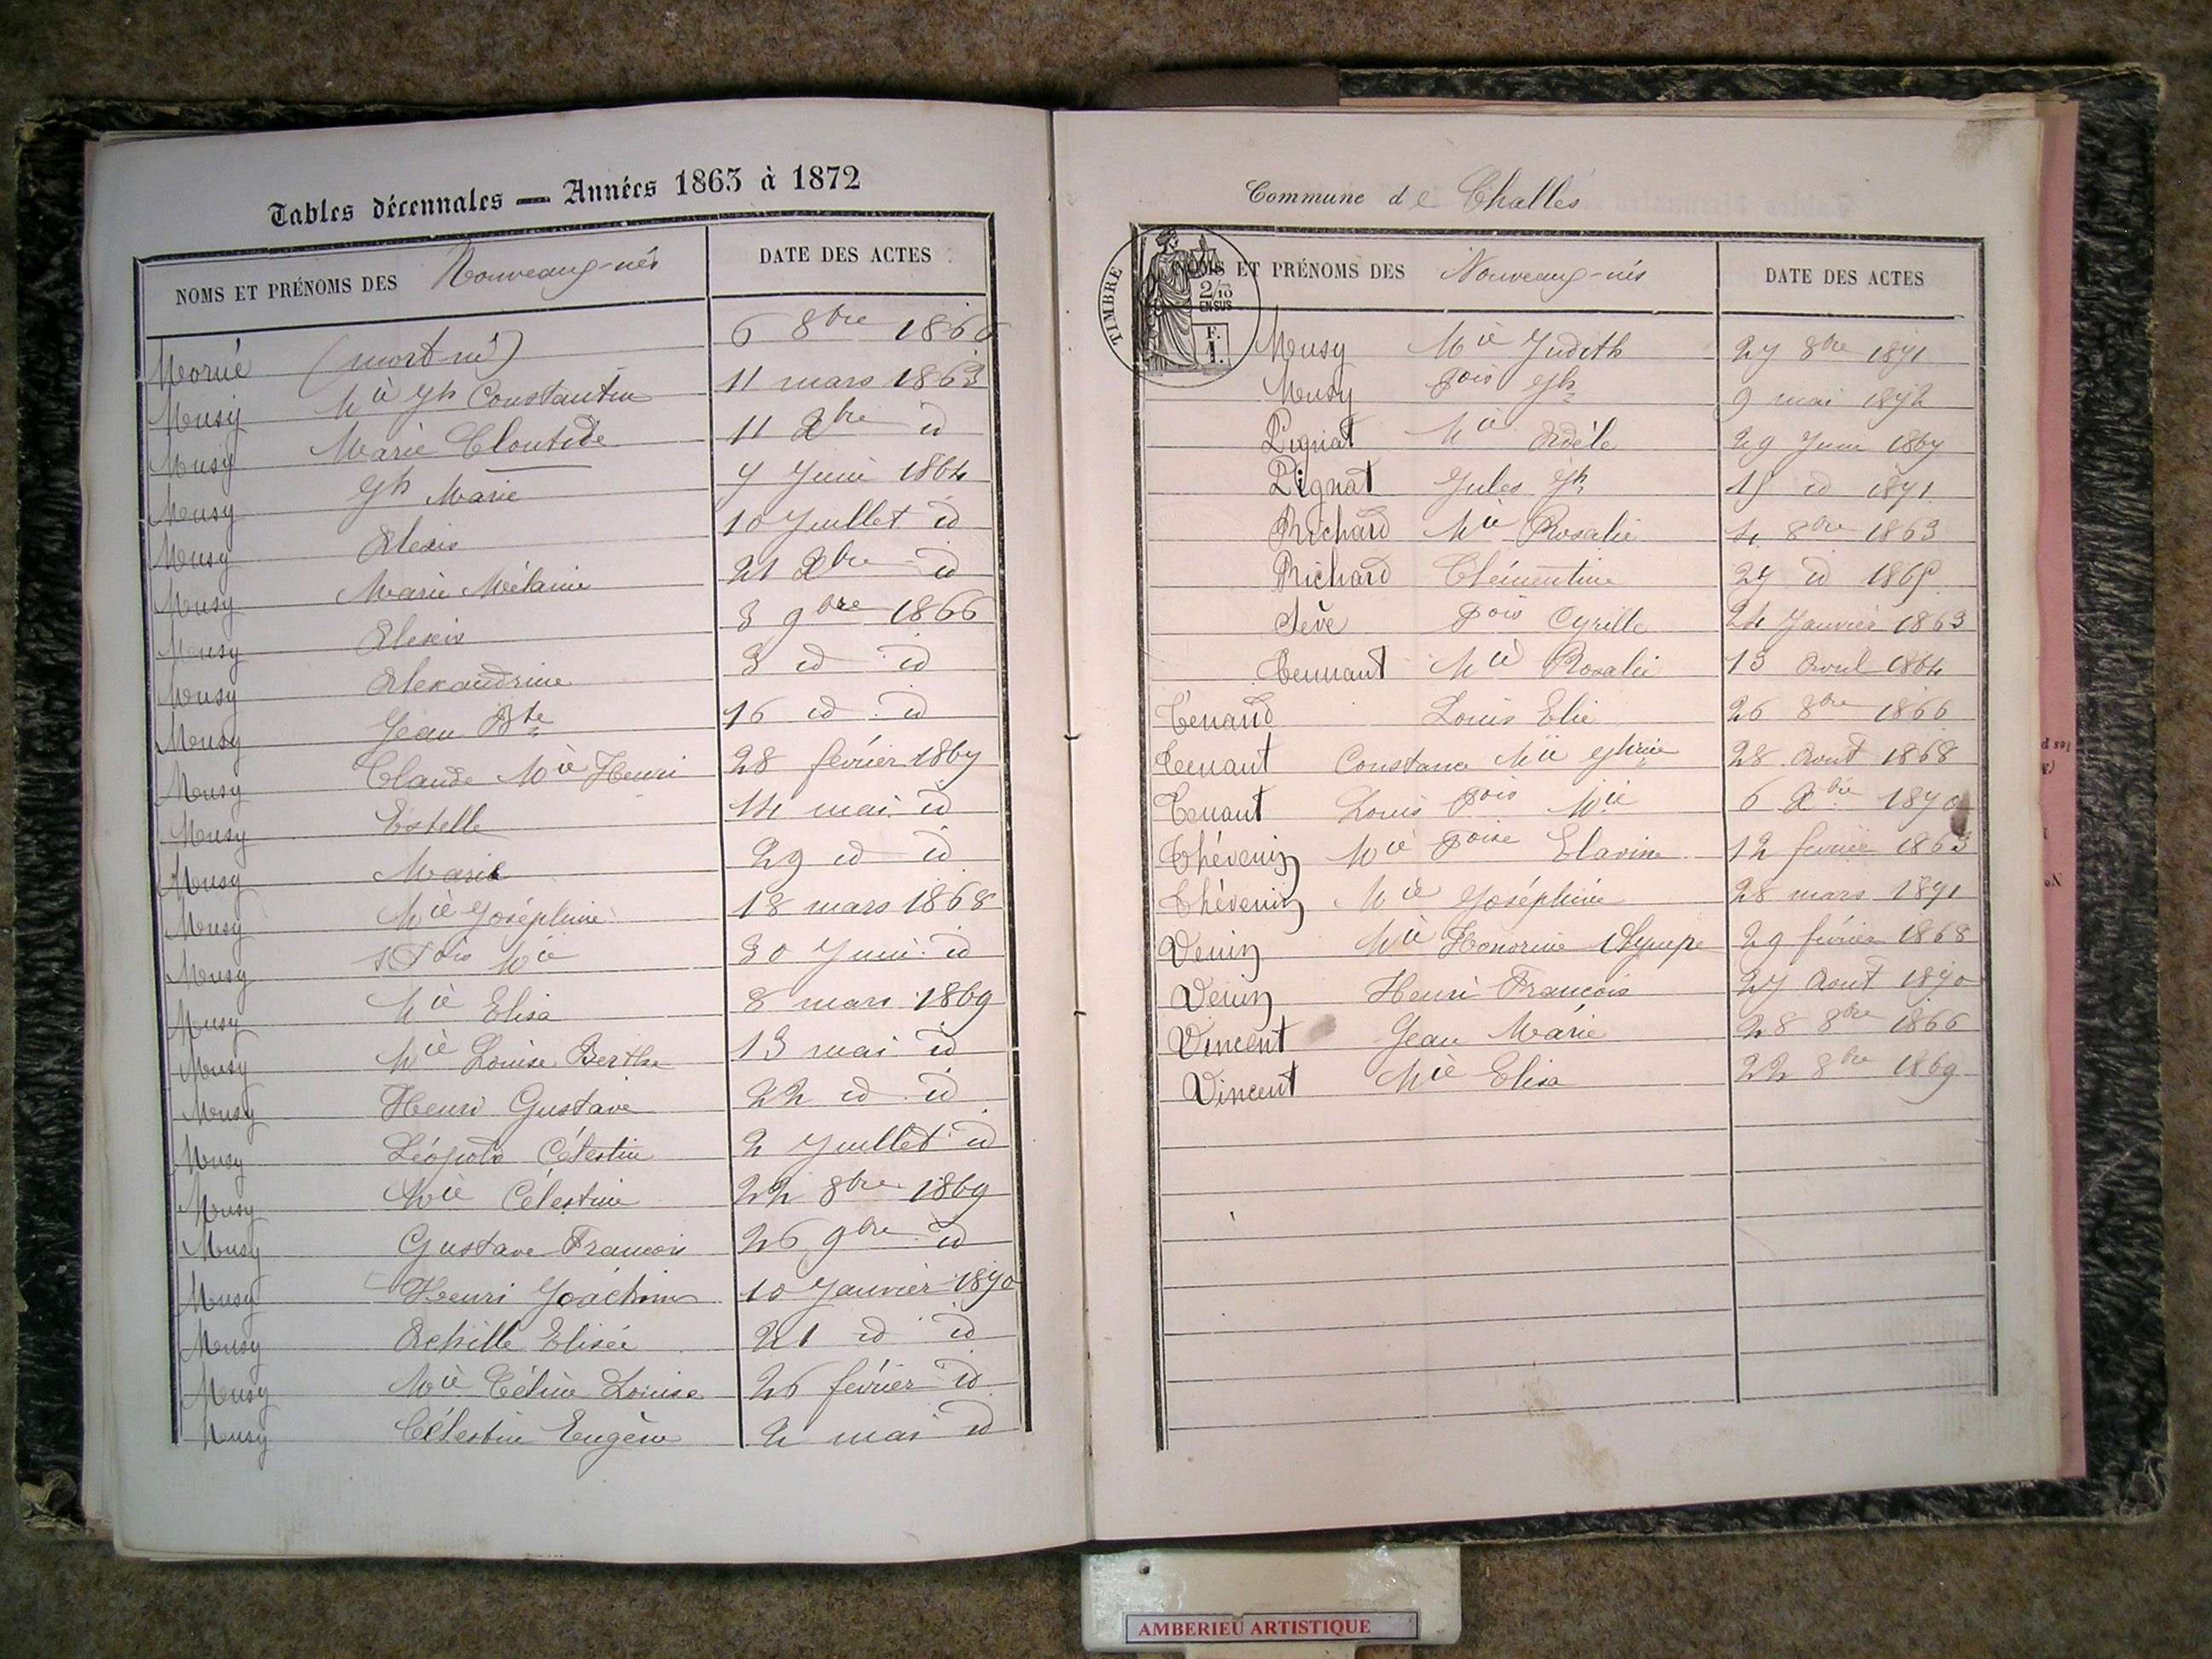 Tables décennales — Années 1863 à 1872
NOMS ET PRÉNOMS DES Nouveaux-nés DATE DES ACTES
(mort-né) 6 8bre 1866
Musy Mie Jh Constantin 11 mars 1863
Musy Marie Cloutide 11 Xbre id
Musy Jh Marie 7 Juin 1864
Musy Alexis 10 Juillet id
Musy Marie Mélanie 21 Xbre id
Musy Alexis 3 9bre 1866
Musy Alexandrine 3 id id
Musy Jean Bte 16 id id
Musy Claude Mie Henri 28 février 1867
Musy Estelle 14 mai id
Musy Marie 29 id id
Musy Mie Joséphine 18 mars 1868
Musy Fois Mie 30 Juin id
Musy Mie Elisa 8 mars 1869
Musy Mie Louise Berthe 13 mai id
Musy Henri Gustave 22 id id
Musy Léopold Célestin 2 Juillet id
Musy Mie Célestine 22 8bre 1869
Musy Gustave François 26 9bre id
Musy Henri Joachim 10 Janvier 1870
Musy Achille Elisée 21 id id
Musy Mie Céline Louise 26 février id
Musy Célestin Eugène 2 mai id
Commune de Challes
TIMBRE
2/10
EN SUS
F.
1.
NOMS ET PRÉNOMS DES Nouveaux-nés DATE DES ACTES
Musy Mie Judith 27 8bre 1871
Musy fois Jh 9 mai 1872
Pignat Mie Adèle 29 Juin 1867
Pignat Jules Jh 15 id 1871
Richard Mie Rosalie 4 8bre 1863
Richard Clémentine 27 id 1865
Sève fois Cyrille 24 Janvier 1863
Tennant Mie Rosalie 13 Avril 1864
Tenand Louis Elie 26 8bre 1866
Tenant Constance Mie Jhine 28 Aout 1868
Tenant Louis fois Mie 6 Xbre 1870
Thévenin Mie foise Flavine 12 février 1863
Thévenin Mie Joséphine 28 mars 1871
Venin Mie Honorine Olympe 29 février 1868
Venin Henri François 27 Aout 1870
Vincent Jean Marie 28 8bre 1866
Vincent Mie Elisa 22 8bre 1869
AMBERIEU ARTISTIQUE